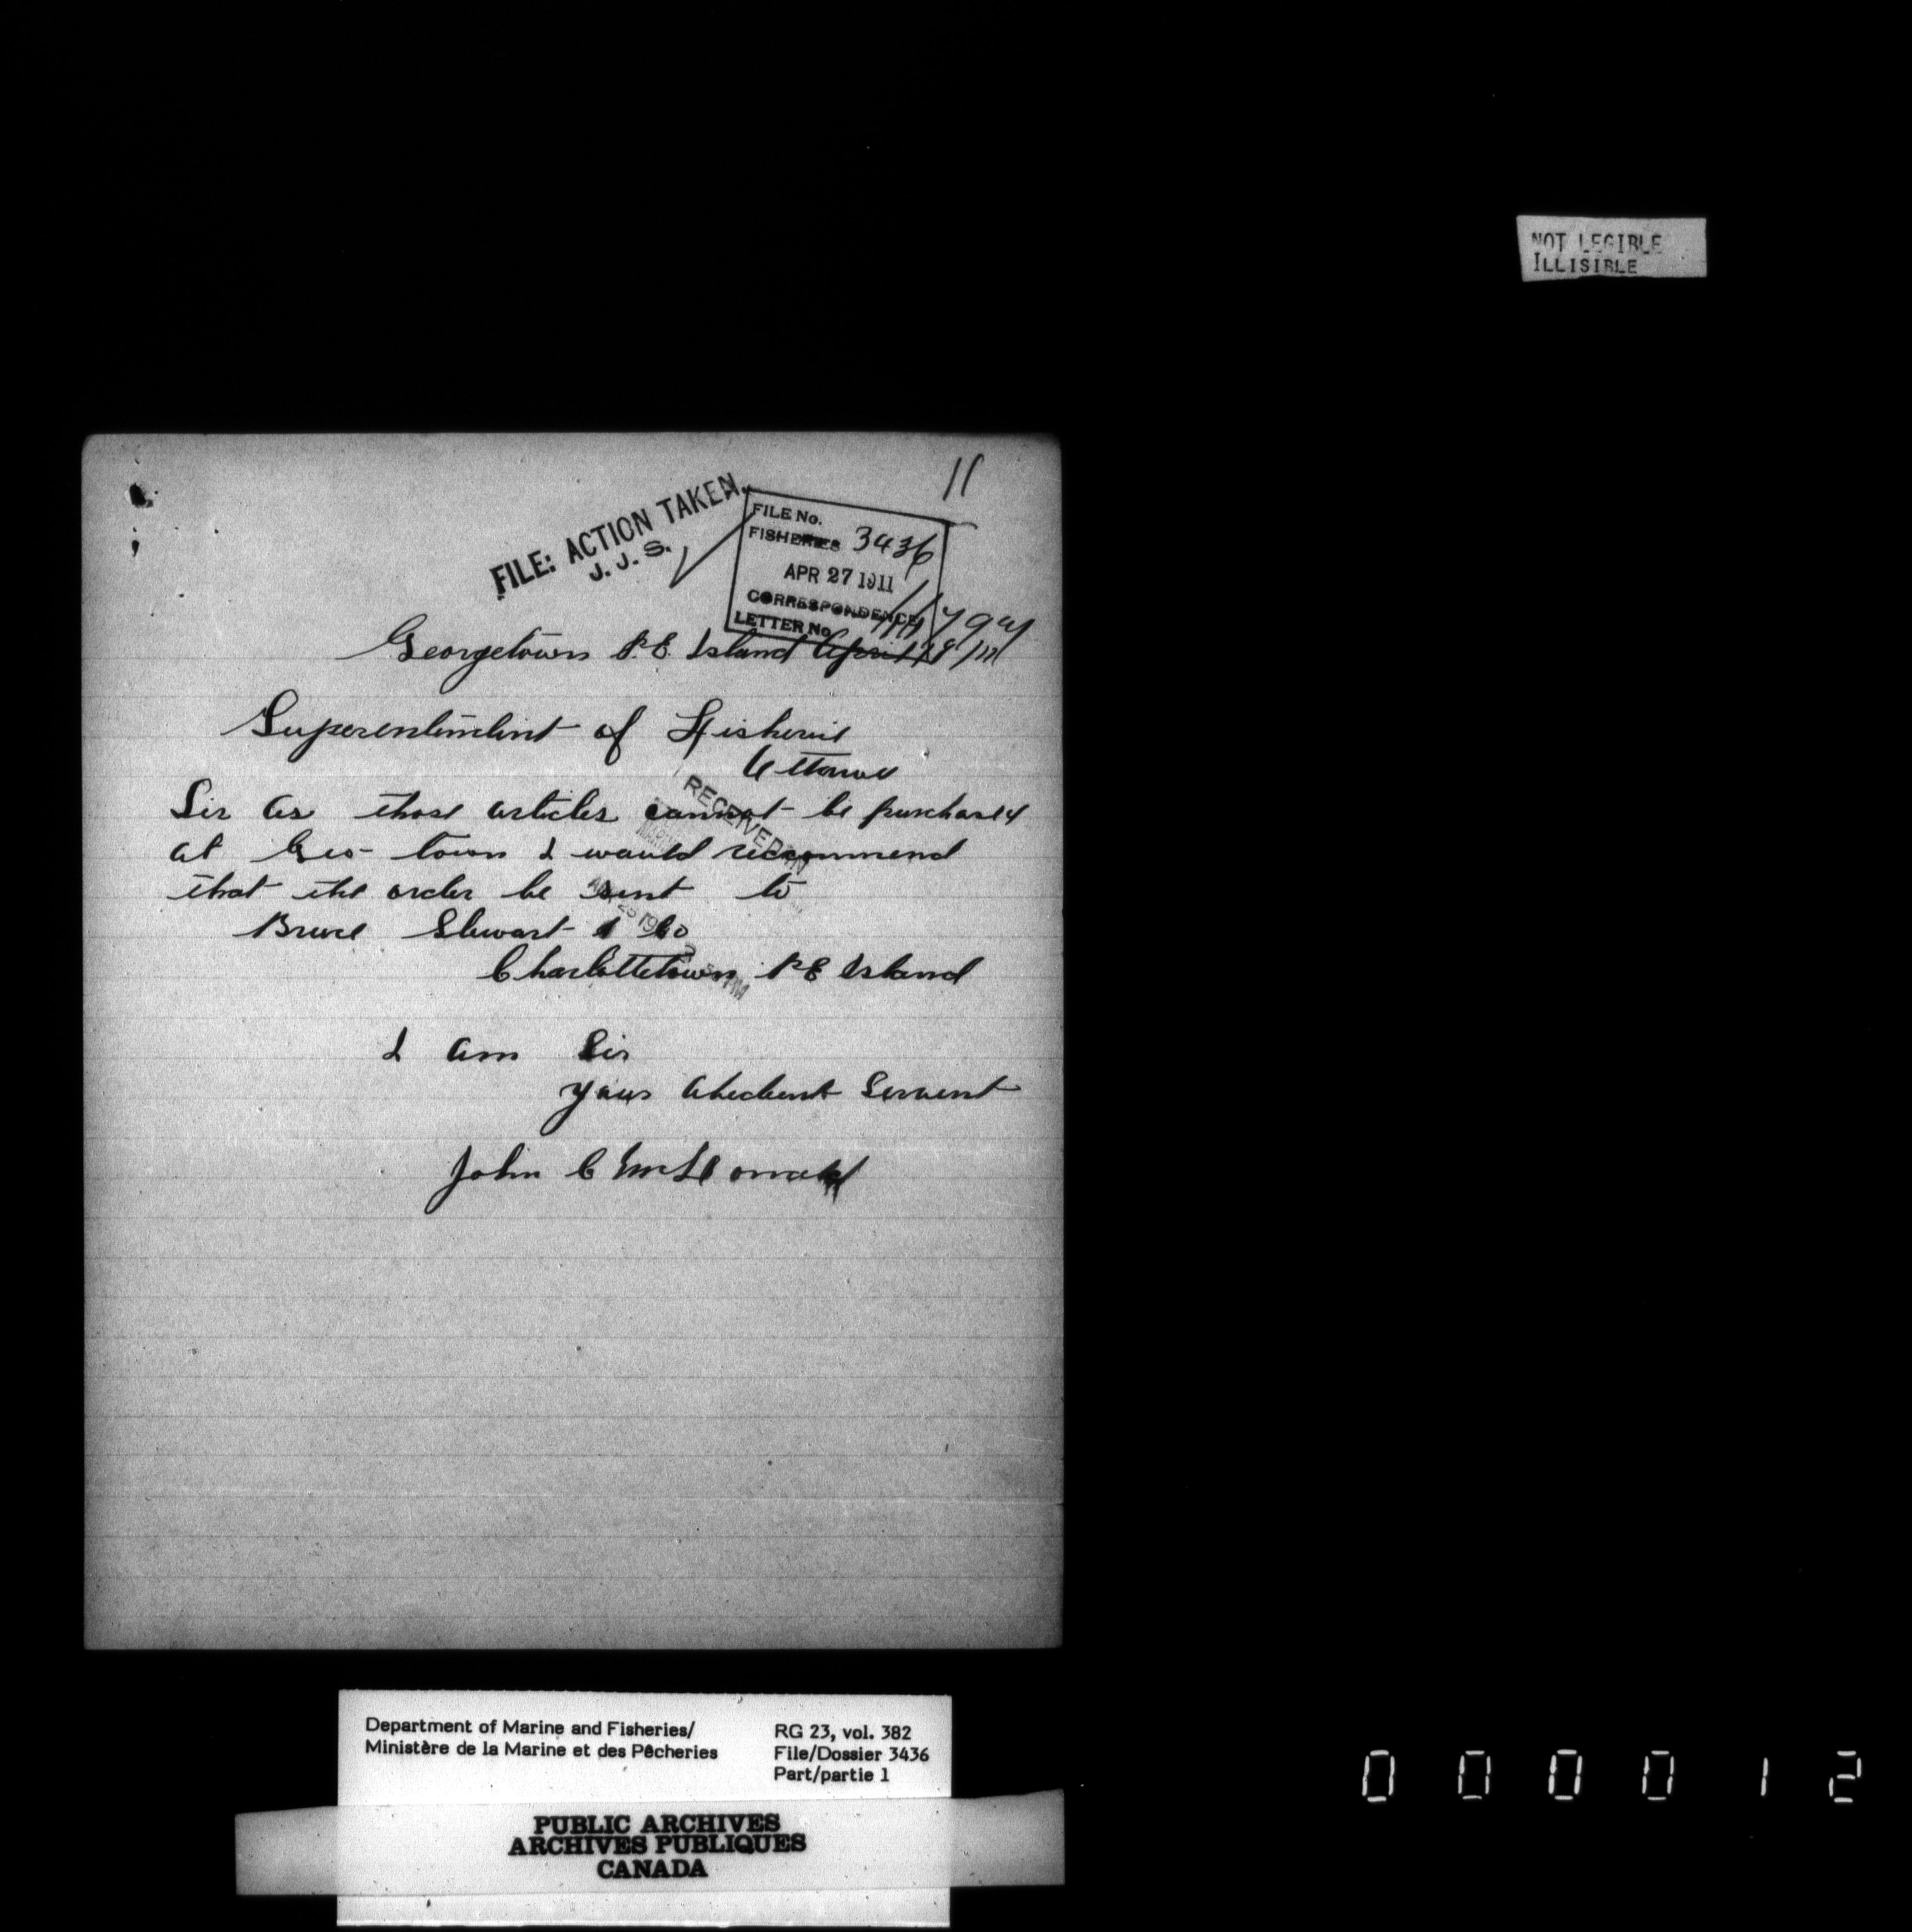 NOT LEGIBLE
ILLISIBLE
11
FILE: ACTION TAKEN.
J. J. S.
FILE No.
FISHERIES 3436
APR 27 1911
CORRESPONDENCE
LETTER No.
Georgetown P.E. Island April
Superentindint of Fisheries
Ottawa
RECEIVED IN
Sir As those articles cannot be purchased
at Geo- town I would reccommend
that the order be sent to
Bruce Stewart & Co
Charlottetown P E Island
I am Sir
Your Obedient Servent
John C McDonald
Department of Marine and Fisheries/
Ministère de la Marine et des Pêcheries
RG 23, vol. 382
File/Dossier 3436
Part/partie 1
PUBLIC ARCHIVES
ARCHIVES PUBLIQUES
CANADA
0 0 0 0 1 2